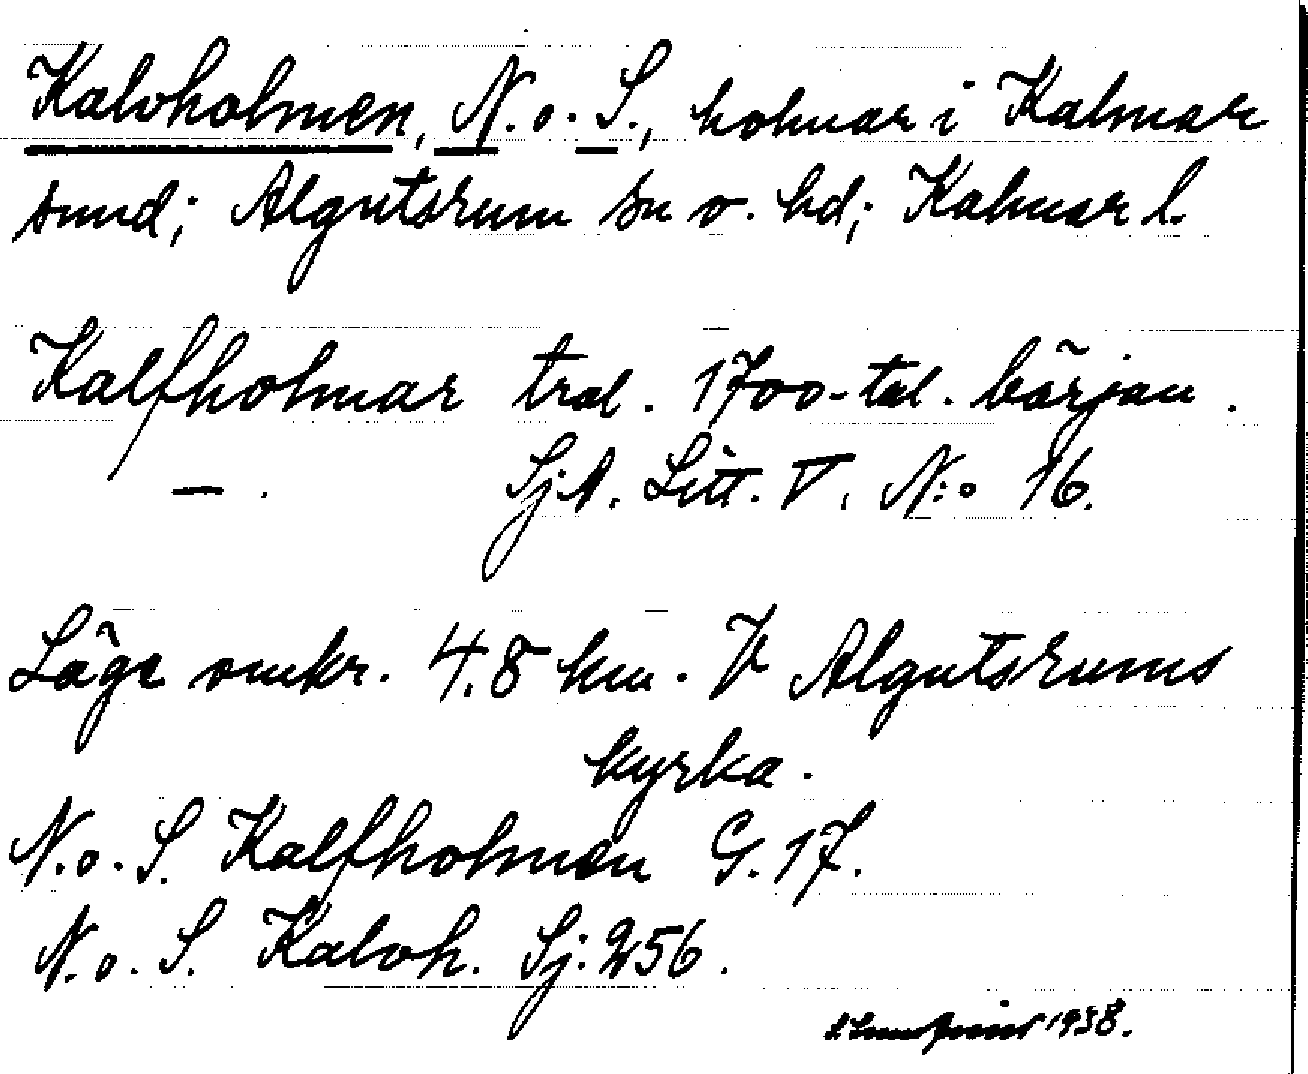 Kalvholmen, N. o. S., holmar i Kalmar
sund; Algutsrum sn o. hd; Kalmar l.
Kalfholmar trol. 1700-tal. början.
—. SjA. Litt. V. N:o 16.
Läge omkr. 4.8 km. V Algutsrums
kyrka.
N. o. S. Kalfholmen G. 17.
N. o. S. Kalvh. Sj: 256.
1938.